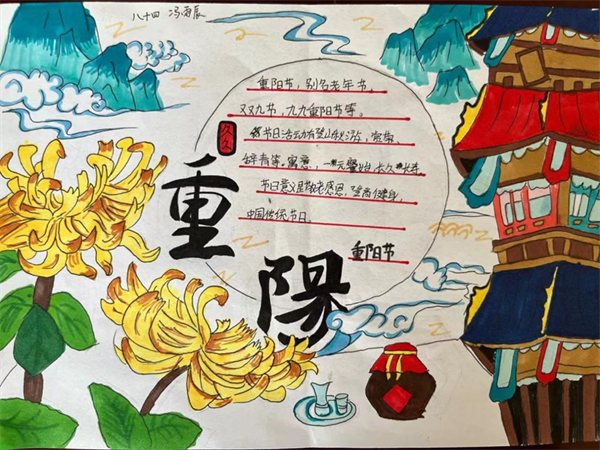 八十四 冯
重阳节，别名老年节。
双九节，九九重阳节等。
节日活动有登山秋游，赏菊
辞青等，寓意，一元肇始，长久长寿
节日意义是敬老感恩，登高健身，
中国传统节日。
重阳节
久久
重陽